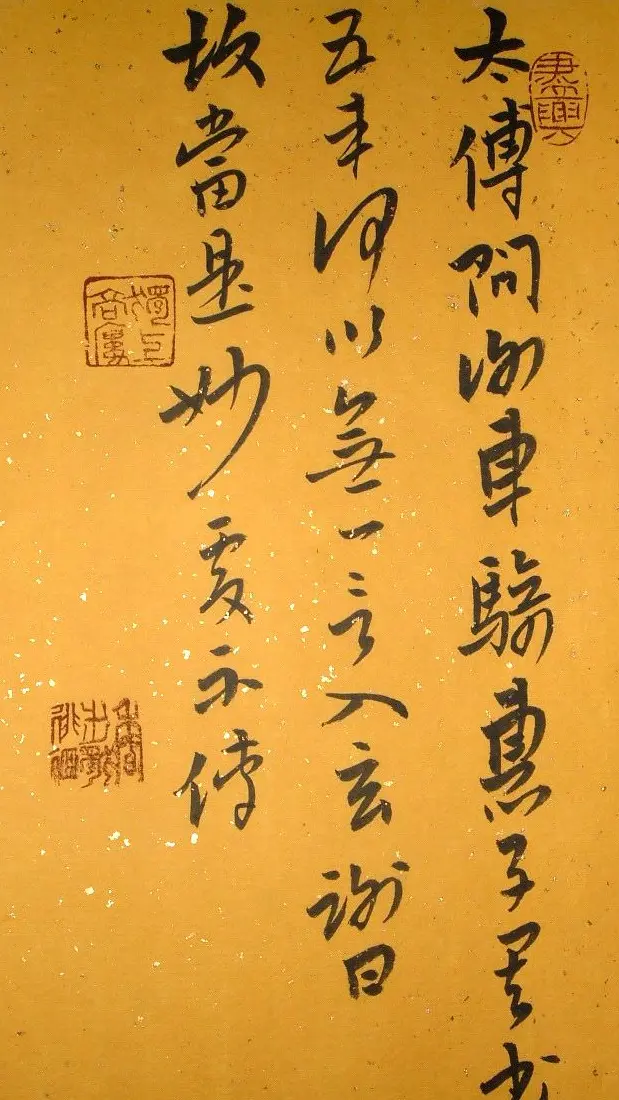 太傅問謝車騎惠子其書
五車何以無一言入玄謝曰
故當是妙處不傳